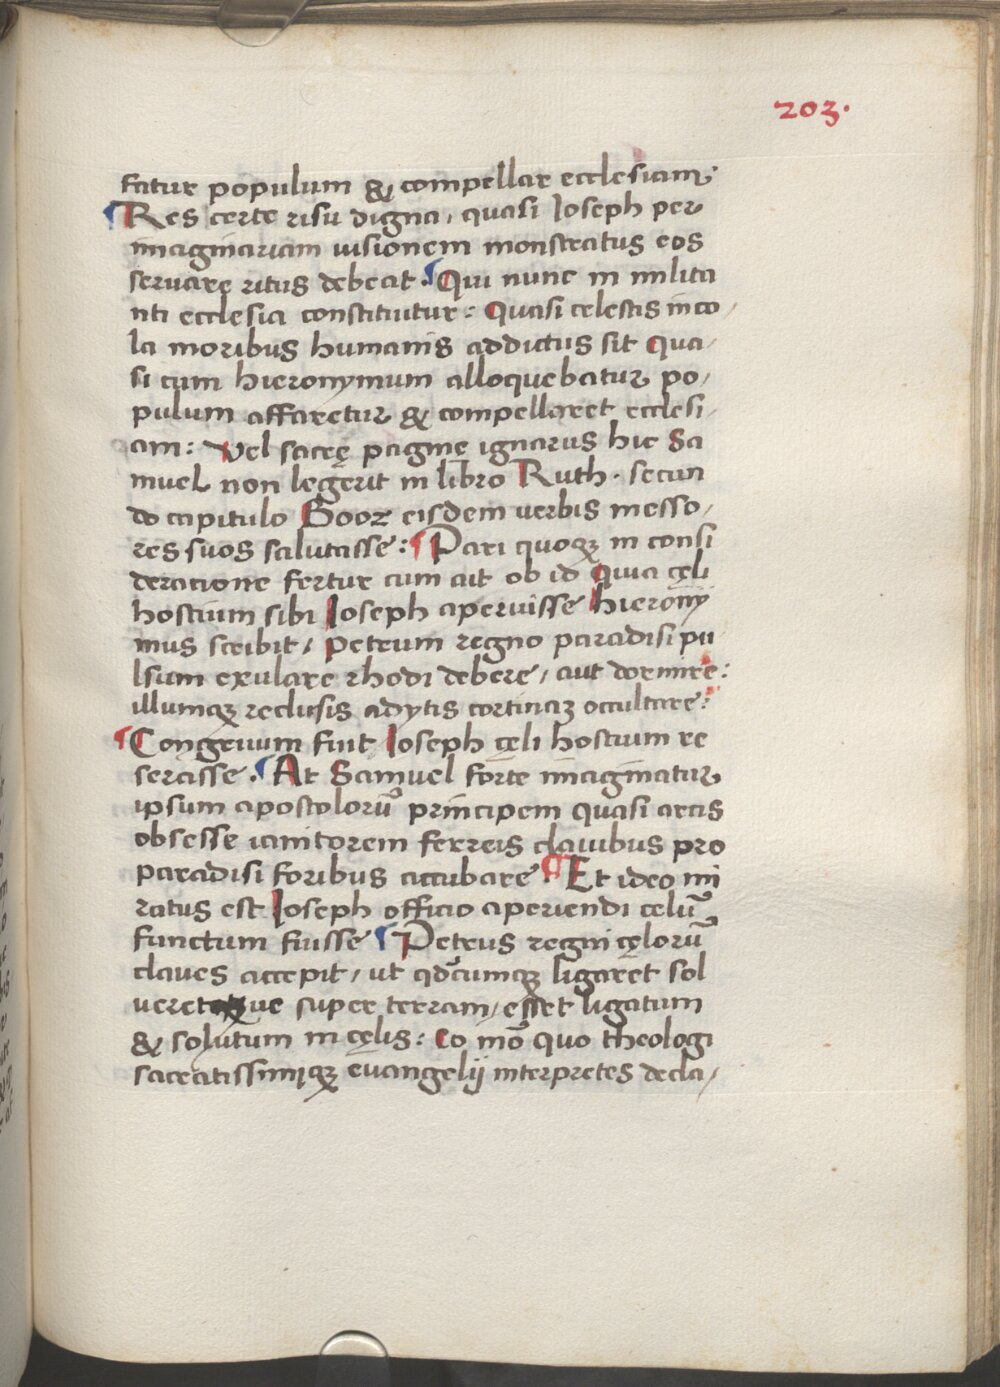 203.
fatur populum & compellat ecclesiam.
¶Res certe risu digna, quasi Ioseph per
imaginariam uisionem monstratus eos
seruare ritus debeat. ¶Qui nunc in milita
nti ecclesia constituitur: Quasi celestis inco,
la moribus humanis addictus sit Qua,
si cum hieronymum alloquebatur po,
pulum affaretur & compellaret ecclesi,
am: Vel sacrę pagine ignarus hic Sa
muel non legerit in libro Ruth. secun
do capitulo Booz eisdem uerbis messo,
res suos salutasse: ¶Pari quoqꝫ in consi
deratione fertur cum ait ob id Quia cęli
hostium sibi Ioseph aperuisse hierony
mus scribit, Petrum regno paradisi pu
lsum exulare rhodi debere, aut dormire:
illumqꝫ reclusis adytis cortinaꝫ occultare:
¶Congruum fuit Ioseph cęli hostium re
serasse. ¶At Samuel forte imaginatur
ipsum apostolorū principem quasi arcis
obsesse ianitorem ferreis clauibus pro
paradisi foribus accubare. ¶Et ideo mi
ratus est Ioseph officio aperiendi celū
functum fuisse ¶Petrus regni cęlorū
claues accepit, ut qdcumqꝫ ligaret sol
ueretue super terram, esset ligatum
& solutum in cęlis: Eo mō quo theologi
sacratissimiqꝫ euangelij interpretes decla,